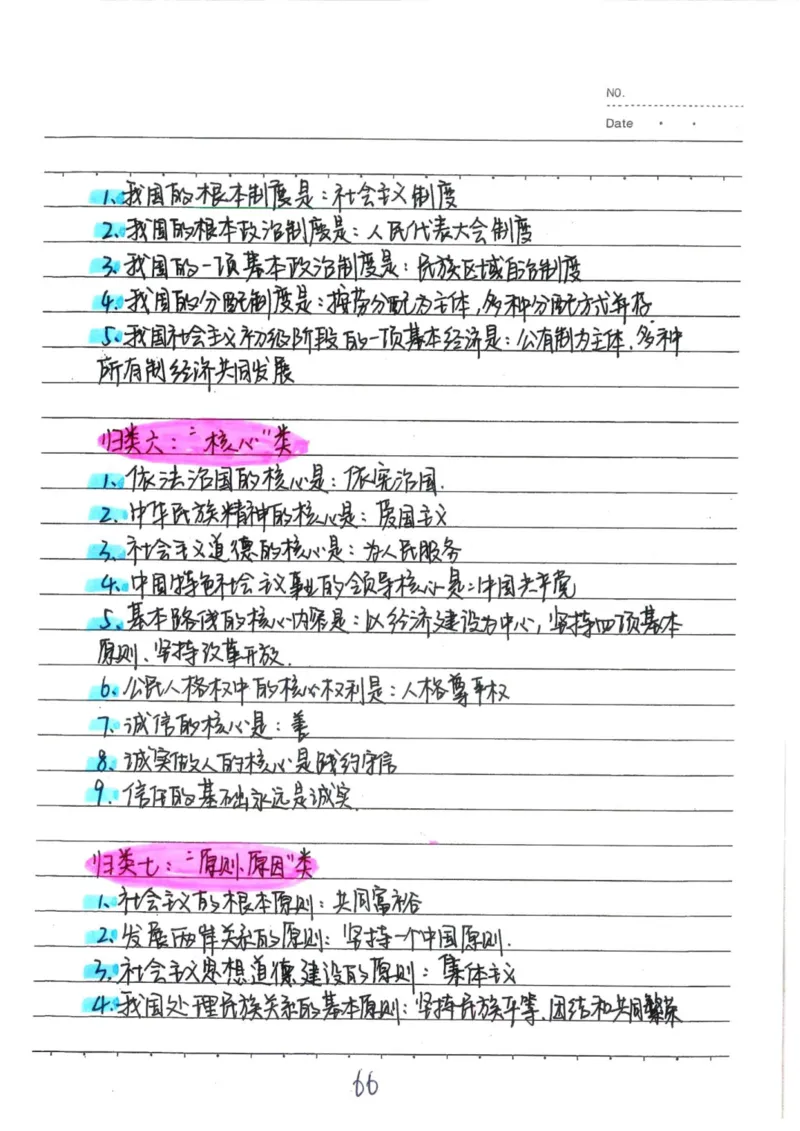 NO.
Date
1、我国的根本制度是：社会主义制度
2、我国的根本政治制度是：人民代表大会制度
3、我国的一项基本政治制度是：民族区域自治制度
4、我国的分配制度是：按劳分配为主体，多种分配方式并存
5、我国社会主义初级阶段的一项基本经济是：公有制为主体、多种
所有制经济共同发展
归类六：“核心”类
1、依法治国的核心是：依宪治国.
2、中华民族精神的核心是：爱国主义
3、社会主义道德的核心是：为人民服务
4、中国特色社会主义事业的领导核心是：中国共产党
5、基本路线的核心内容是：以经济建设为中心，坚持四项基本
原则、坚持改革开放.
6、公民人格权中的核心权利是：人格尊严权
7、诚信的核心是：善
8、诚实做人的核心是践约守信
9、信任的基础永远是诚实.
归类七：“原则、原因”类
1、社会主义的根本原则：共同富裕
2、发展两岸关系的原则：坚持一个中国原则.
3、社会主义思想道德建设的原则：集体主义
4、我国处理民族关系的基本原则：坚持民族平等、团结和共同繁荣
66